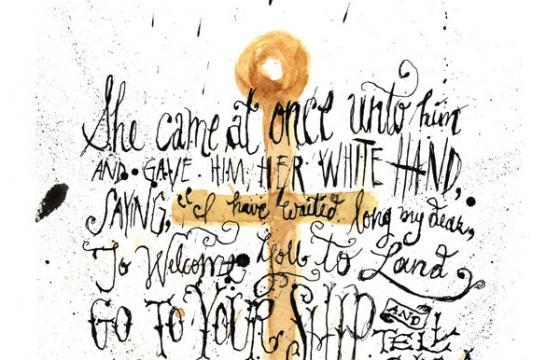 She came at once unto him
AND · GAVE · HIM HER WHITE HAND,
SAYING, "I have waited long my dear,
To Welcome you to Land
GO TO YOUR SHIP AND TELL